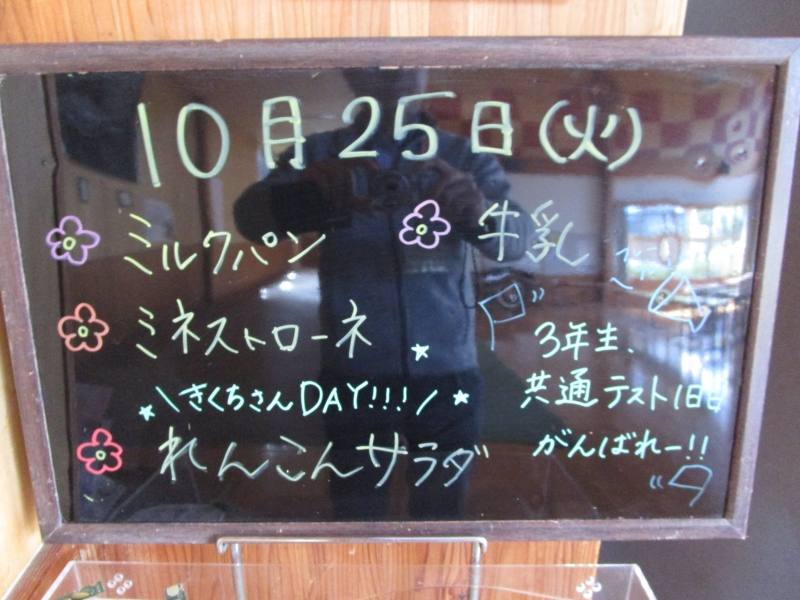 10月25日(火)
ミルクパン
牛乳
ミネストローネ
\きくちさんDAY!!!/
れんこんサラダ
3年生、
共通テスト1日目
がんばれー!!